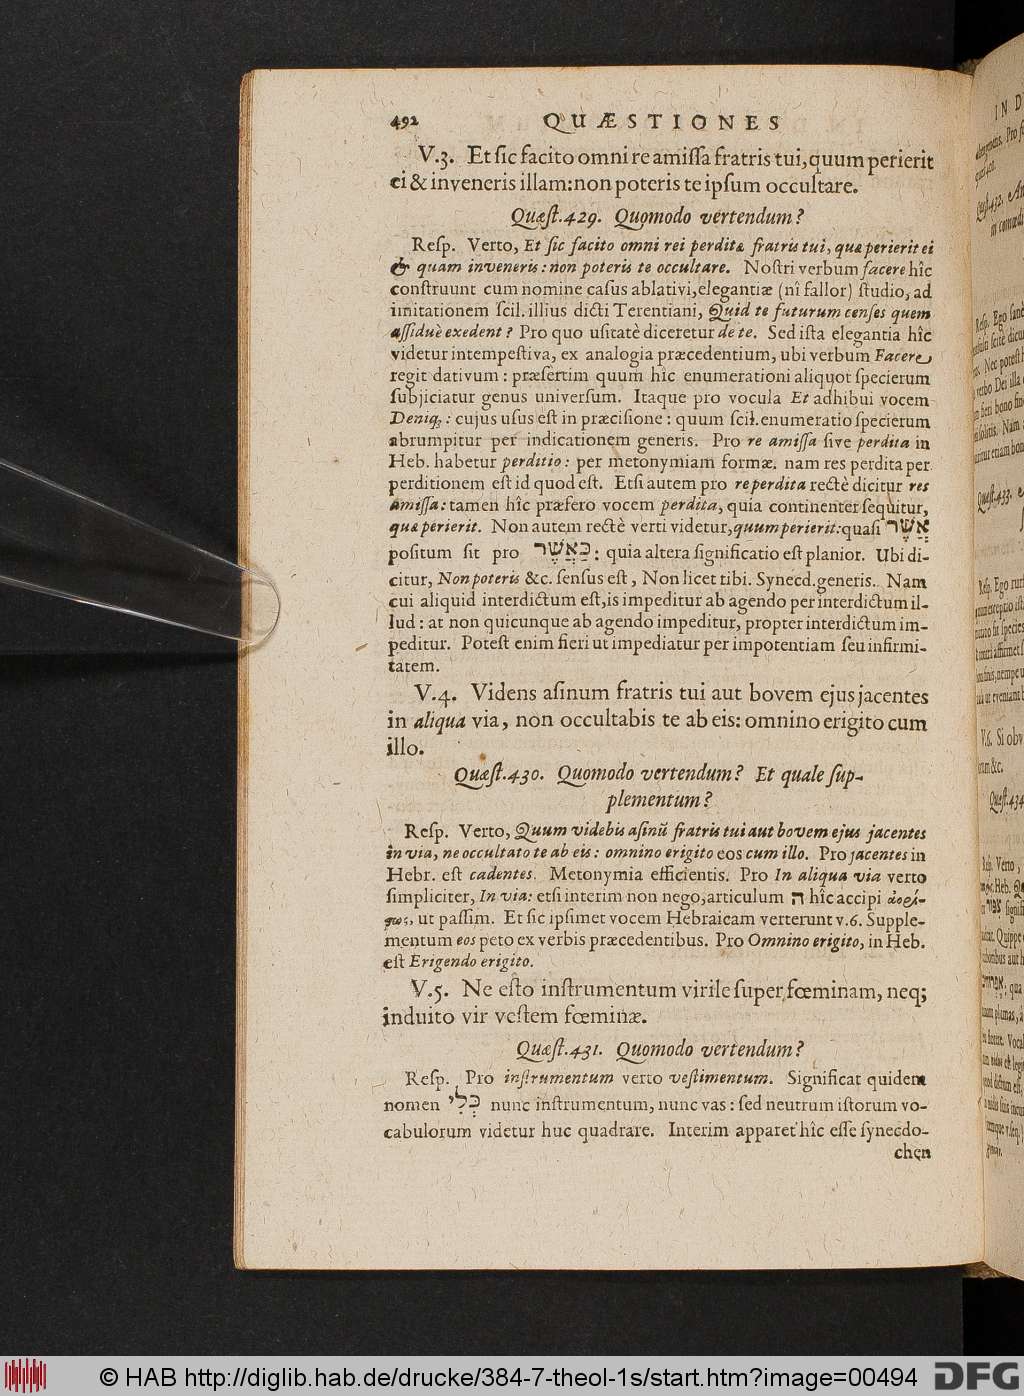 492 QUÆSTIONES
V.3. Et ſic facito omni re amiſſa fratris tui, quum perierit
ei & inveneris illam: non poteris te ipſum occultare.
Quæſt. 429. Quomodo vertendum?
Reſp. Verto, Et ſic facito omni rei perditæ fratris tui, quæ perierit ei
& quam inveneris: non poteris te occultare. Noſtri verbum facere hîc
conſtruunt cum nomine caſus ablativi, elegantiæ (nî fallor) ſtudio, ad
imitationem ſcil. illius dicti Terentiani, Quid te futurum cenſes quem
aſſiduè exedent? Pro quo uſitatè diceretur de te. Sed iſta elegantia hîc
videtur intempeſtiva, ex analogia præcedentium, ubi verbum Facere
regit dativum: præſertim quum hîc enumerationi aliquot ſpecierum
ſubjiciatur genus univerſum. Itaque pro vocula Et adhibui vocem
Deniq;: cujus uſus eſt in præciſione: quum ſcil. enumeratio ſpecierum
abrumpitur per indicationem generis. Pro re amiſſa ſive perdita in
Heb. habetur perditio: per metonymiam formæ. nam res perdita per
perditionem eſt id quod eſt. Etſi autem pro re perdita rectè dicitur res
amiſſa: tamen hîc præfero vocem perdita, quia continenter ſequitur,
quæ perierit. Non autem rectè verti videtur, quum perierit: quaſi אֲשֶׁר
poſitum ſit pro כַּאֲשֶׁר: quia altera ſignificatio eſt planior. Ubi di-
citur, Non poteris &c. ſenſus eſt, Non licet tibi. Synecd. generis. Nam
cui aliquid interdictum eſt, is impeditur ab agendo per interdictum il-
lud: at non quicunque ab agendo impeditur, propter interdictum im-
peditur. Poteſt enim fieri ut impediatur per impotentiam ſeu infirmi-
tatem.
V.4. Videns aſinum fratris tui aut bovem ejus jacentes
in aliqua via, non occultabis te ab eis: omnino erigito cum
illo.
Quæſt. 430. Quomodo vertendum? Et quale ſup-
plementum?
Reſp. Verto, Quum videbis aſinũ fratris tui aut bovem ejus jacentes
in via, ne occultato te ab eis: omnino erigito eos cum illo. Pro jacentes in
Hebr. eſt cadentes. Metonymia efficientis. Pro In aliqua via verto
ſimpliciter, In via: etſi interim non nego, articulum ה hîc accipi ἀορίσ-
τως, ut paſſim. Et ſic ipſimet vocem Hebraicam verterunt v.6. Supple-
mentum eos peto ex verbis præcedentibus. Pro Omnino erigito, in Heb.
eſt Erigendo erigito.
V.5. Ne eſto inſtrumentum virile ſuper fœminam, neq;
induito vir veſtem fœminæ.
Quæſt. 431. Quomodo vertendum?
Reſp. Pro inſtrumentum verto veſtimentum. Significat quidem
nomen כְּלִי nunc inſtrumentum, nunc vas: ſed neutrum iſtorum vo-
cabulorum videtur huc quadrare. Interim apparet hîc eſſe ſynecdo-
chen
© HAB http://diglib.hab.de/drucke/384-7-theol-1s/start.htm?image=00494
DFG